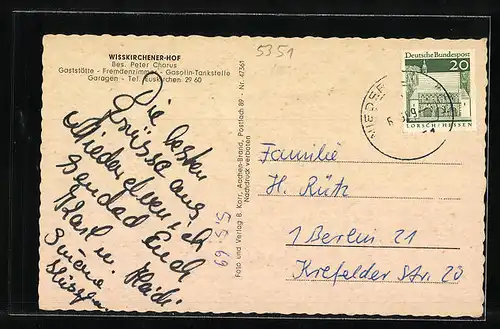 WISSKIRCHENER-HOF
Bes. Peter Chorus
Gaststätte - Fremdenzimmer - Gasolin-Tankstelle
Garagen - Tel. Euskirchen 29 60
5351
Die besten
Grüsse aus
Niederelvenich
sendad Euch
Karl u. Heidi
5.5.69
Foto und Verlag B. Korr, Aachen-Brand, Postfach 89 - Nr. 47361
Nachdruck verboten
Deutsche Bundespost
20
LORSCH/HESSEN
NIEDER
Familie
H. Rütz
1 Berlin 21
Krefelder Str. 20